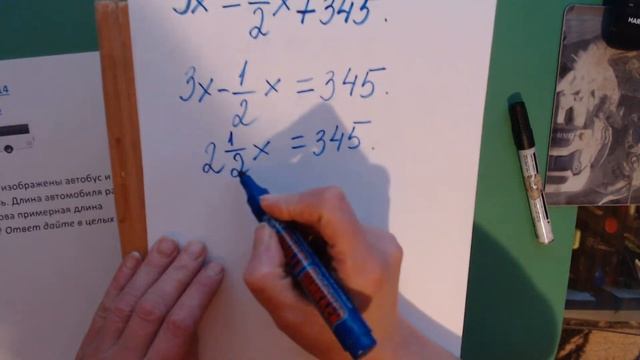 3x - 1/2 x + 345.
3x - 1/2 x = 345.
2 1/2 x = 345.
14
изображены автобус и
ь. Длина автомобиля ра
ова примерная длина
Ответ дайте в целых